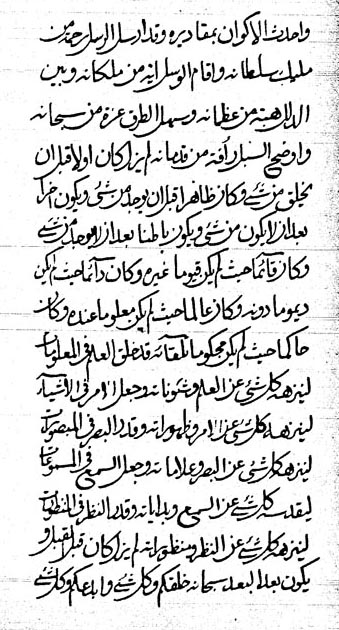 واحدث الاكوان بمقاديره وقد ارسل الرسل حجة من
مليك سلطانه واقام الوسل اية من ملكانه وبين
الدلا هبته من عظمانه وسهل الطرق عزة من سبحانه
واوضح السبل رأفة من قدمانه لم يزل كان اولا قبل ان
يخلق من شئ وكان ظاهرا قبل ان يوجد من شئ ويكون اخرا
بعد ان لا يكون من شئ ويكون باطنا بعد ان لا يوجد من شئ
وكان قآئما حيث لم يكن قيوما غيره وكان دآئما حيث لم يكن
ديموما دونه وكان عالما حيث لم يكن معلوما عنده وكان
حاكما حيث لم يكن محكوما تلقآئه قد خلق العلم في المعلومات
لينزهه كل شئ عن العلم وشئوناته وجعل الامر في الاشيآء
لينزهه كل شئ عن الامر وظهوراته وقدر البصر في المبصرات
لينزهه كل شئ عن البصر وعلاماته وجعل السمع في المسموعات
ليقدسه كل شئ عن السمع وبداياته وقدر النظر في المنظورات
لينزهه كل شئ عن النظر ومنظر انه لم يزل كان قبل القبل و
يكون بعد البعد سبحانه خلقكم وكل شئ وابدعكم وكل شئ